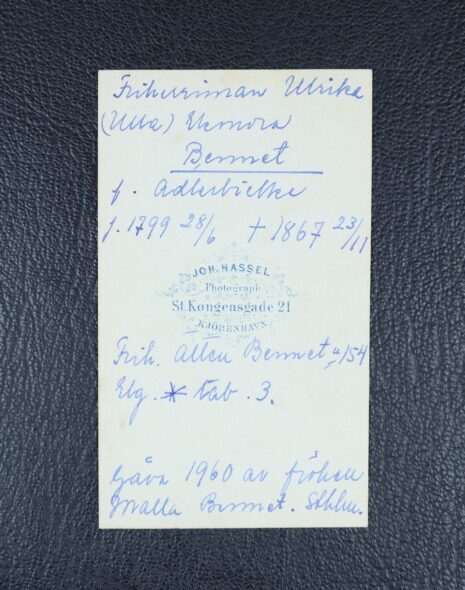 Friherrinnan Ulrika
(Ulla) Eleonora
Bennet
f. Adlerbielke
f. 1799 28/6 † 1867 23/11
JOH. HASSEL
Photograph
St. Kongensgade 21
KJÖBENHAVN
Frih. ätten Bennet n 154
Elg. * tab. 3.
Gåva 1960 av fröken
Malla Bennet. Sthlm.